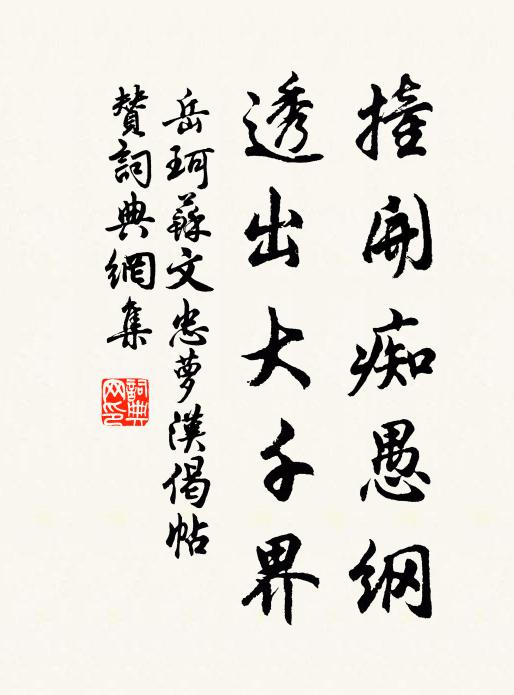 撞開痴愚網
透出大千界
岳珂蘇文忠夢漢偈帖
贊詞典網集
詞典網印